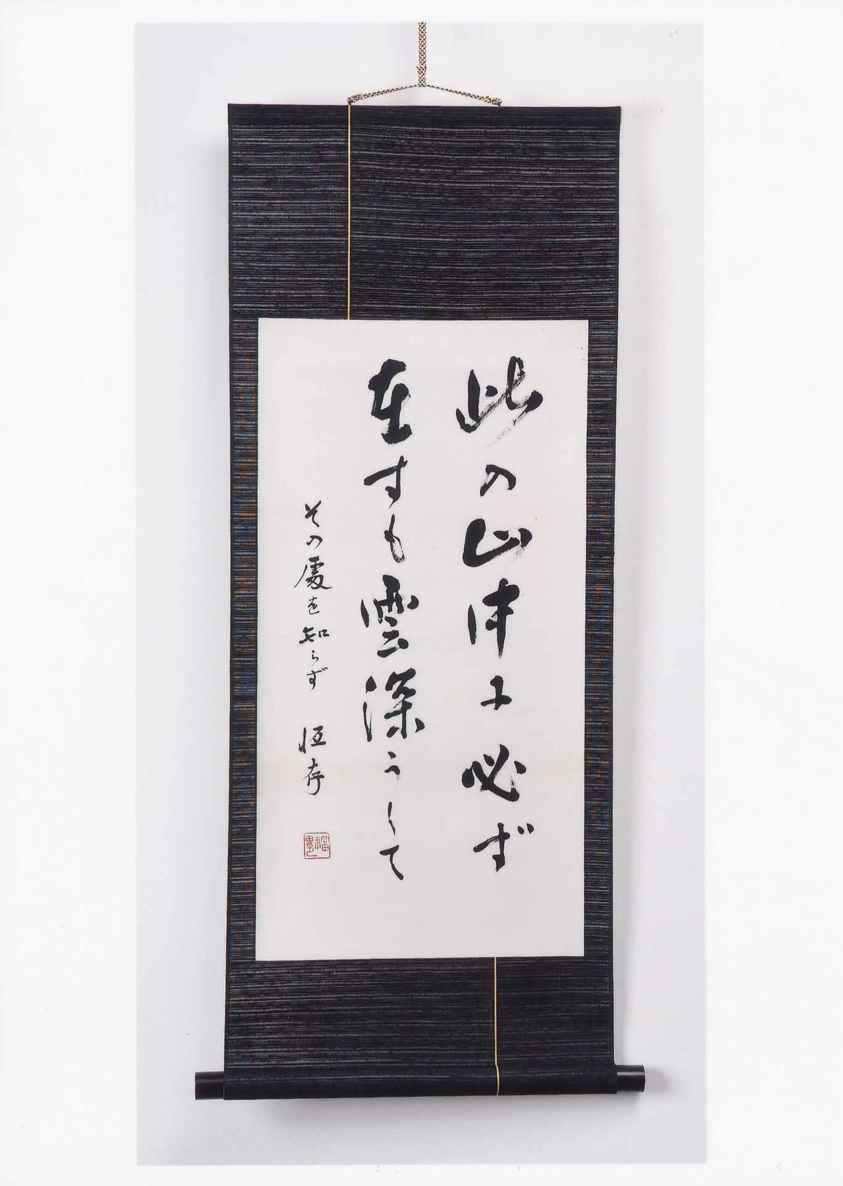 此の山中に必ず
在すも雲深うして
その處を知らず　恆存